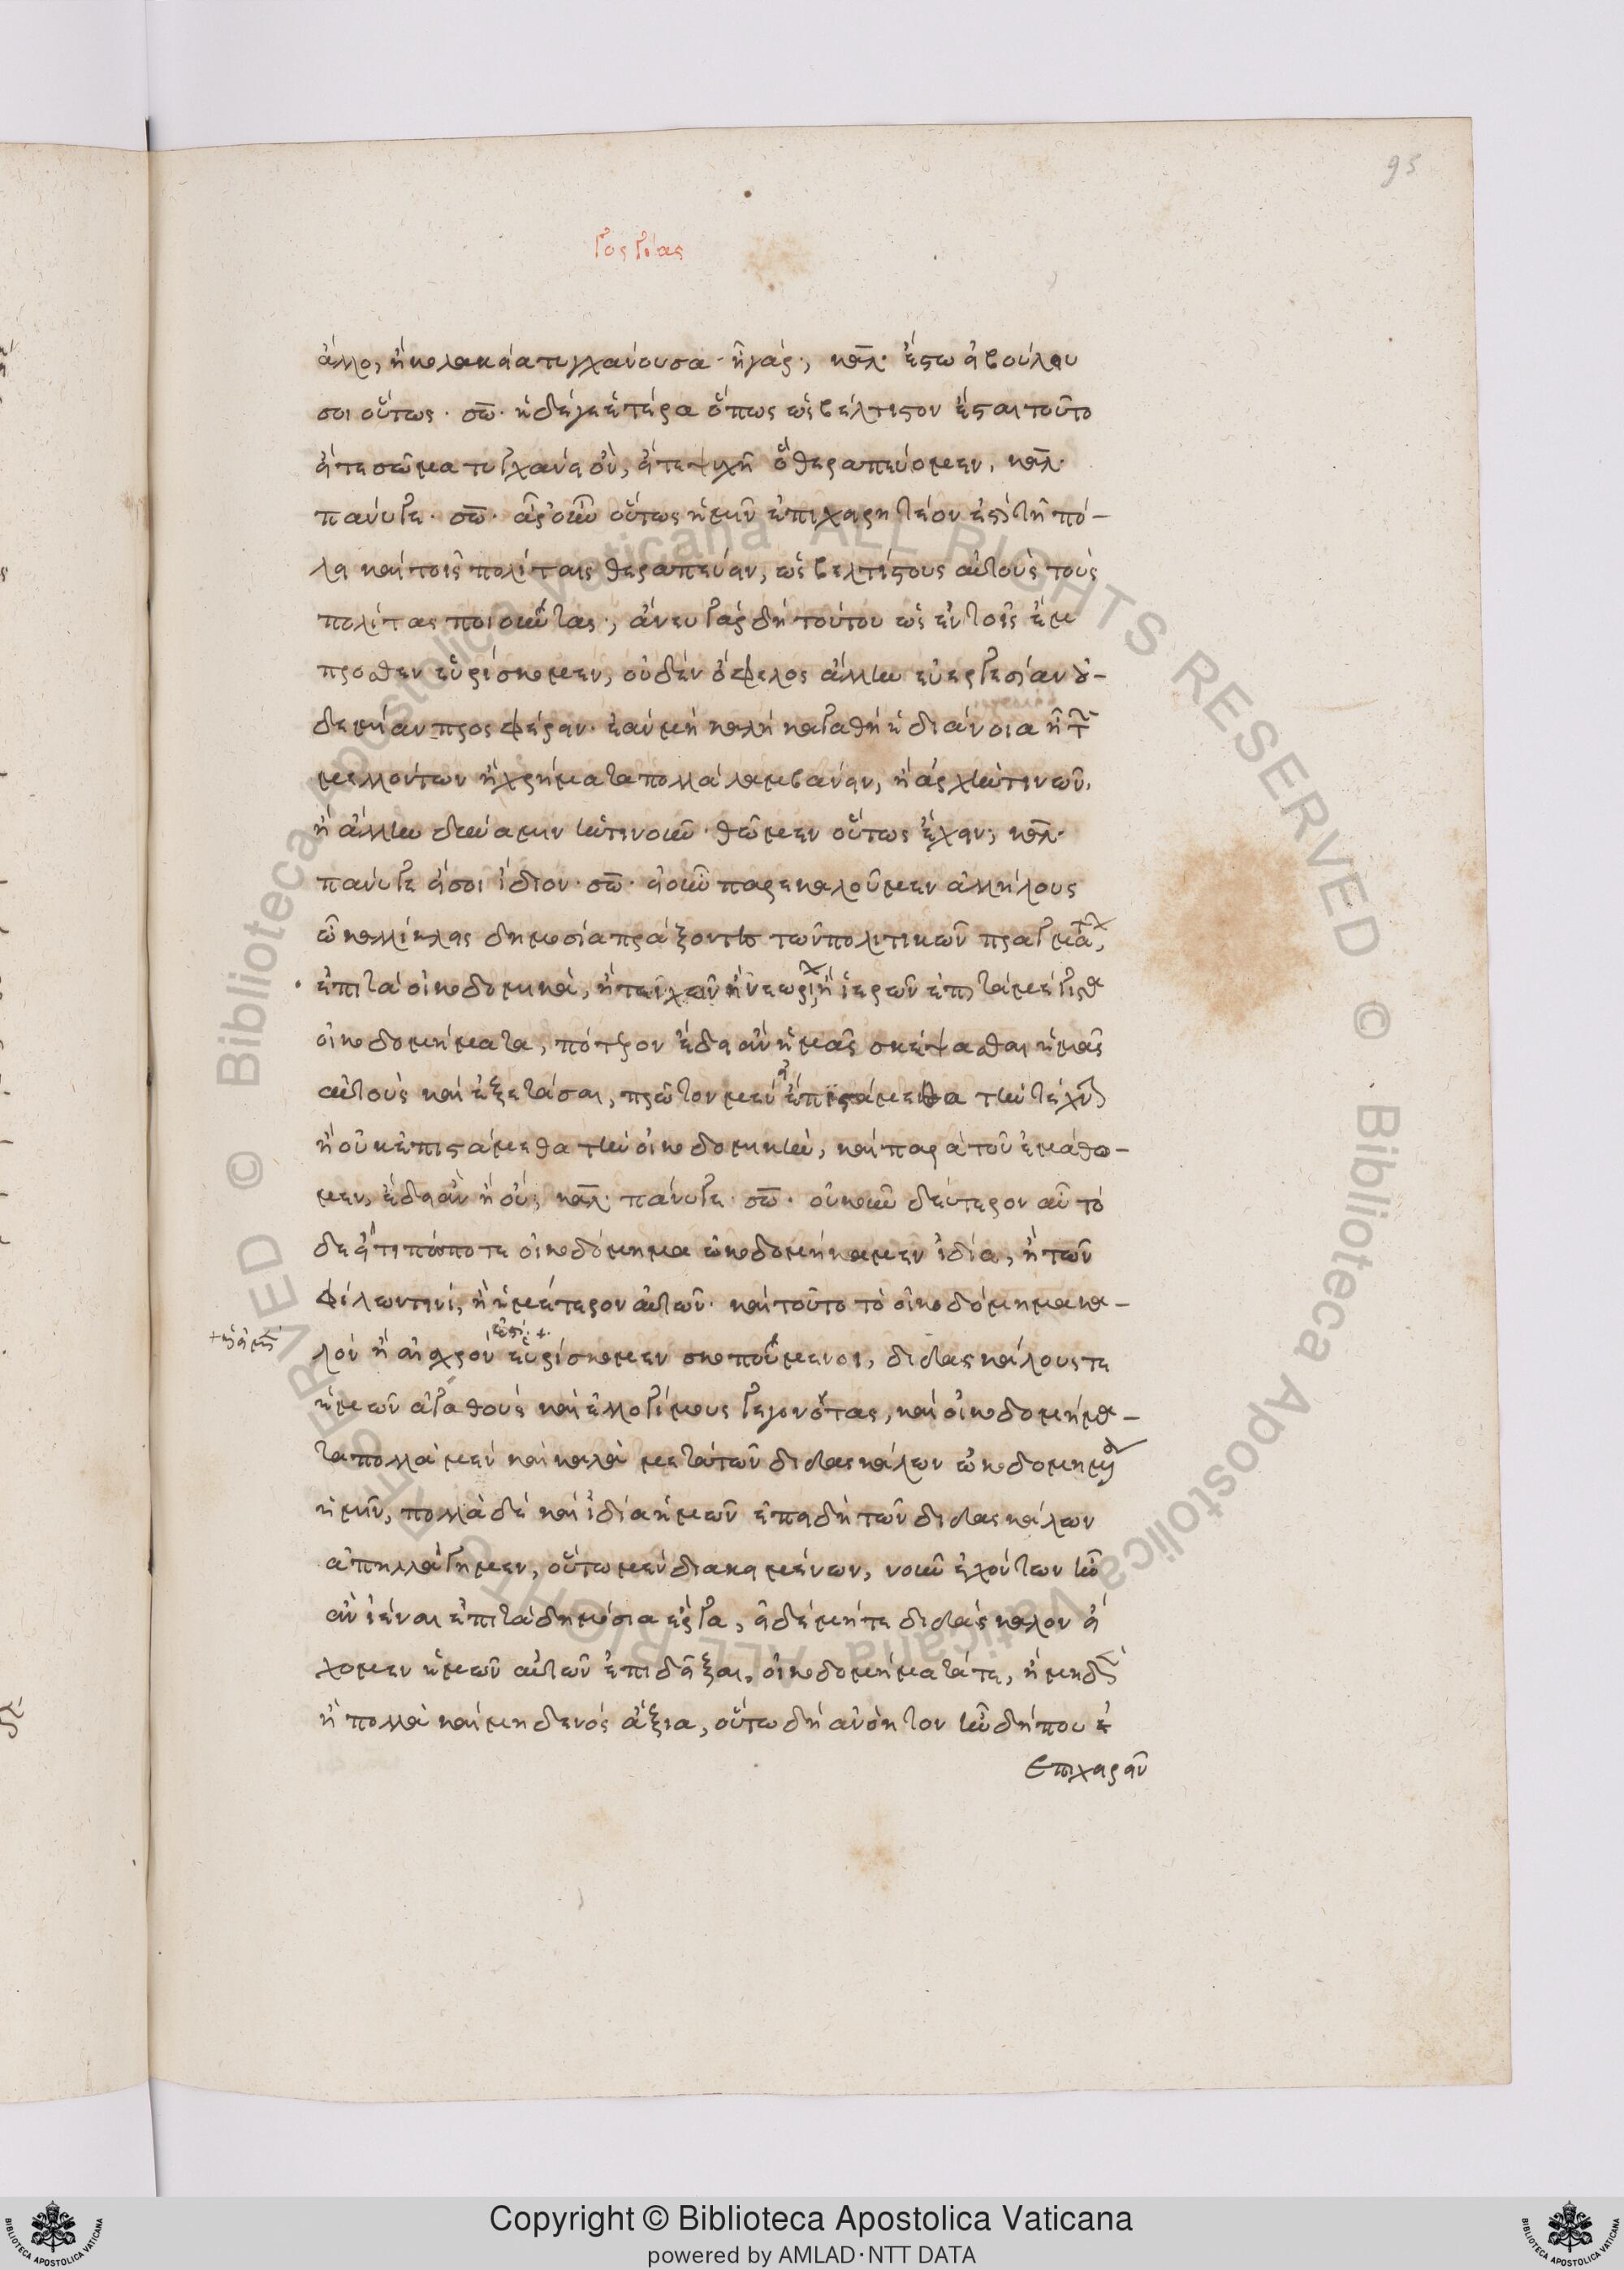 95
Γοργίας
ἄλλο, ἢ κολακεία τυγχάνουσα· ἦ γάρ; καλ. ἔστω εἰ βούλει
σοι οὕτως· σω. ἡ δέ γε ἑτέρα ὅπως ὡς βέλτιστον ἔσται τοῦτο
εἴτε σῶμα τυγχάνει ὂν, εἴτε ψυχὴ ὃ θεραπεύομεν, καλ.
πάνυ γε· σω. ἆρ' οὖν οὕτως ἡμῖν ἐπιχειρητέον ἐστὶ τῇ πό-
λει καὶ τοῖς πολίταις θεραπεύειν, ὡς βελτίστους αὐτοὺς τοὺς
πολίτας ποιοῦντας; ἄνευ γὰρ δὴ τούτου ὡς ἐν τοῖς ἔμ
προσθεν εὑρίσκομεν, οὐδὲν ὄφελος ἄλλην εὐεργεσίαν οὐ-
δεμίαν προσφέρειν· ἐὰν μὴ καλὴ κἀγαθὴ ἡ διάνοια ᾖ τῶν
μελλόντων ἢ χρήματα πολλὰ λαμβάνειν, ἢ ἀρχήν τινων,
ἢ ἄλλην δύναμιν ἡντινοῦν· θῶμεν οὕτως ἔχειν; καλ.
πάνυ γε εἴ σοι ἴδιον· σω. εἰ οὖν παρεκαλοῦμεν ἀλλήλους
ὦ καλλίκλεις δημοσίᾳ πράξοντες τῶν πολιτικῶν πραγμάτων,
ἐπὶ τὰ οἰκοδομικὰ, ἢ τειχῶν ἢ νεωρίων ἢ ἱερῶν ἐπὶ τὰ μέγιστα
οἰκοδομήματα, πότερον ἔδει ἂν ἡμᾶς σκέψασθαι ἡμᾶς
αὐτοὺς καὶ ἐξετάσαι, πρῶτον μὲν εἰ ἐπιστάμεθα τὴν τέχνην
ἢ οὐκ ἐπιστάμεθα τὴν οἰκοδομικὴν, καὶ παρὰ τοῦ ἐμάθο-
μεν, ἔδει ἂν ἢ οὔ; καλ. πάνυ γε· σω. οὐκοῦν δεύτερον αὖ τό
δε εἴ τι πώποτε οἰκοδόμημα ᾠκοδομήκαμεν ἰδίᾳ, ἢ τῶν
φίλων τινὶ, ἢ ἡμέτερον αὐτῶν· καὶ τοῦτο τὸ οἰκοδόμημα κα-
λὸν ἢ αἰσχρόν εὑρίσκομεν σκοπούμενοι, διδασκάλους τε
ἡμῶν ἀγαθοὺς καὶ ἐλλογίμους γεγονότας, καὶ οἰκοδομήμα-
τα πολλὰ μὲν καὶ καλὰ μετὰ τῶν διδασκάλων ᾠκοδομημένα
ἡμῖν, πολλὰ δὲ καὶ ἰδίᾳ ἡμῶν ἐπειδὴ τῶν διδασκάλων
ἀπηλλάγημεν, οὕτω μὲν διακειμένων, νοῦν ἐχόντων ἦν
ἂν ἰέναι ἐπὶ τὰ δημόσια ἔργα, εἰ δὲ μήτε διδάσκαλον εἴ
χομεν ἡμῶν αὐτῶν ἐπιδεῖξαι, οἰκοδομήματά τε, ἢ μηδὲν
ἢ πολλὰ καὶ μηδενὸς ἄξια, οὕτω δὴ ἀνόητον ἦν δήπου ἐ
ἐπιχειρεῖν
© Biblioteca Apostolica Vaticana ALL RIGHTS RESERVED © Biblioteca Apostolica Vaticana ALL RIGHTS RESERVED
Copyright © Biblioteca Apostolica Vaticana
powered by AMLAD·NTT DATA
BIBLIOTECA APOSTOLICA VATICANA
BIBLIOTECA APOSTOLICA VATICANA